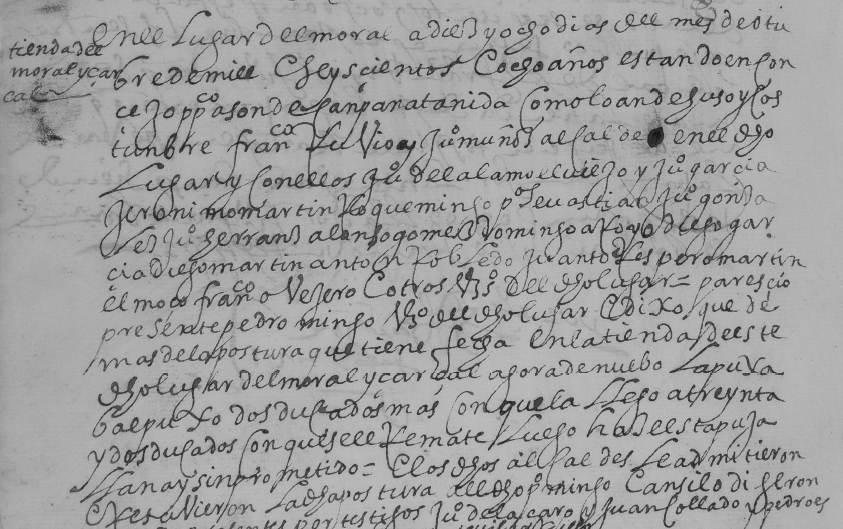 tienda del
moral y car
cal
en el lugar del moral a diez y ocho dias del mes de otu
bre de mill e seyscientos e ocho años estando en con
cejo ppco a son de canpana tanida como lo an de uso y cos
tunbre franco Ruvio y juo muñoz alcaldes en el dho
lugar y con ellos juo del alamo el viejo y juo garcia
jeronimo martin Roque mingo po sevastian juo gonça
lez juo serrano alonso gomez domingo aRoyo diego gar
cia diego martin anton Robledo juan toRes pero martin
el moço franco ovejero e otros vzos del dho lugar = parescio
presente pedro mingo vzo del dho lugar e dixo que de
mas de la postura que tiene fecha en la tienda deeste
dho lugar del moral y carcal agora de nuebo la puxa
e a puxo dos ducados mas con que la llego a treynta
y dos ducados con que se le Remate luego haze esta puja
llana y sin prometido = e los dhos alcaldes le admitieron
e Recivieron la dha postura al dho po mingo e ansi lo dixeron
por testigos juo de la caro y juan collado y pedro es